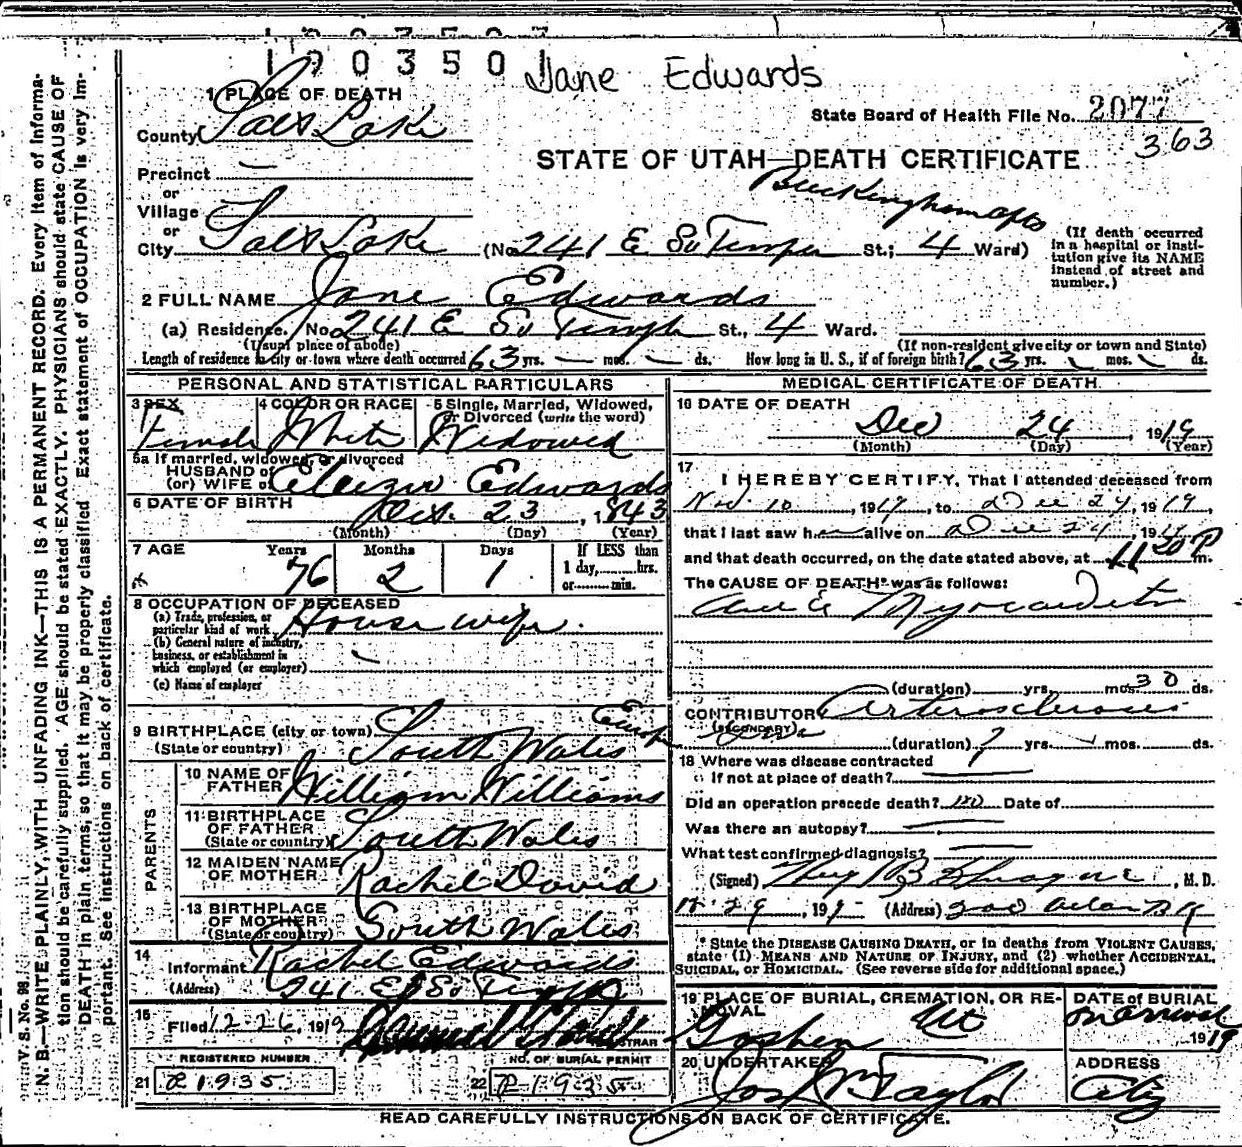 1 0 0 3 5 0 Jane Edwards
State Board of Health File No. 2077
363
STATE OF UTAH—DEATH CERTIFICATE
Buckingham apts
1 PLACE OF DEATH
County Salt Lake
Precinct —
or
Village
or
City Salt Lake (No. 241 E So Temple St.; 4 Ward)
(If death occurred in a hospital or institution give its NAME instead of street and number.)
2 FULL NAME Jane Edwards
(a) Residence. No. 241 E So Temple St., 4 Ward.
(Usual place of abode) (If non-resident give city or town and State)
Length of residence in city or town where death occurred 63 yrs. — mos. — ds. How long in U. S., if of foreign birth? 63 yrs. mos. ds.
PERSONAL AND STATISTICAL PARTICULARS
3 SEX
Female
4 COLOR OR RACE
White
5 Single, Married, Widowed, or Divorced (write the word)
Widowed
5a If married, widowed, or divorced
HUSBAND of
(or) WIFE of Eleizer Edwards
6 DATE OF BIRTH Oct. 23, 1843
(Month) (Day) (Year)
7 AGE Years Months Days If LESS than
76 2 1 1 day, hrs.
or min.
8 OCCUPATION OF DECEASED
(a) Trade, profession, or particular kind of work House wife.
(b) General nature of industry, business, or establishment in which employed (or employer)
(c) Name of employer
9 BIRTHPLACE (city or town)
(State or country) South Wales
PARENTS
10 NAME OF FATHER William Williams
11 BIRTHPLACE OF FATHER
(State or country) South Wales
12 MAIDEN NAME OF MOTHER Rachel David
13 BIRTHPLACE OF MOTHER
(State or country) South Wales
14
Informant Rachel Edwards
(Address) 241 E So Temple
15
Filed 12-26, 1919
REGISTERED NUMBER
21 1935
NO. OF BURIAL PERMIT
22 1935
MEDICAL CERTIFICATE OF DEATH
16 DATE OF DEATH
Dec 24, 1919
(Month) (Day) (Year)
17
I HEREBY CERTIFY, That I attended deceased from
Nov 10, 1919, to Dec 24, 1919,
that I last saw h alive on Dec 24 19
and that death occurred, on the date stated above, at 11 20 P m.
The CAUSE OF DEATH* was as follows:
Myocarditis
(duration) yrs. mos. 30 ds.
CONTRIBUTORY Arterosclerosis
(SECONDARY)
(duration) ? yrs. mos. ds.
18 Where was disease contracted
If not at place of death?
Did an operation precede death? no Date of
Was there an autopsy?
What test confirmed diagnosis?
(Signed) , M. D.
12-29, 19 (Address)
* State the DISEASE CAUSING DEATH, or in deaths from VIOLENT CAUSES,
state (1) MEANS AND NATURE OF INJURY, and (2) whether ACCIDENTAL,
SUICIDAL, or HOMICIDAL. (See reverse side for additional space.)
19 PLACE OF BURIAL, CREMATION, OR REMOVAL
Goshen Ut
DATE of BURIAL
on arrival
1919
20 UNDERTAKER
Jos Wm Taylor
ADDRESS
City
READ CAREFULLY INSTRUCTIONS ON BACK OF CERTIFICATE.
V. S. No. 98.
N. B.—WRITE PLAINLY, WITH UNFADING INK—THIS IS A PERMANENT RECORD. Every item of information
should be carefully supplied. AGE should be stated EXACTLY. PHYSICIANS should state CAUSE OF
DEATH in plain terms, so that it may be properly classified. Exact statement of OCCUPATION is very important.
See instructions on back of certificate.